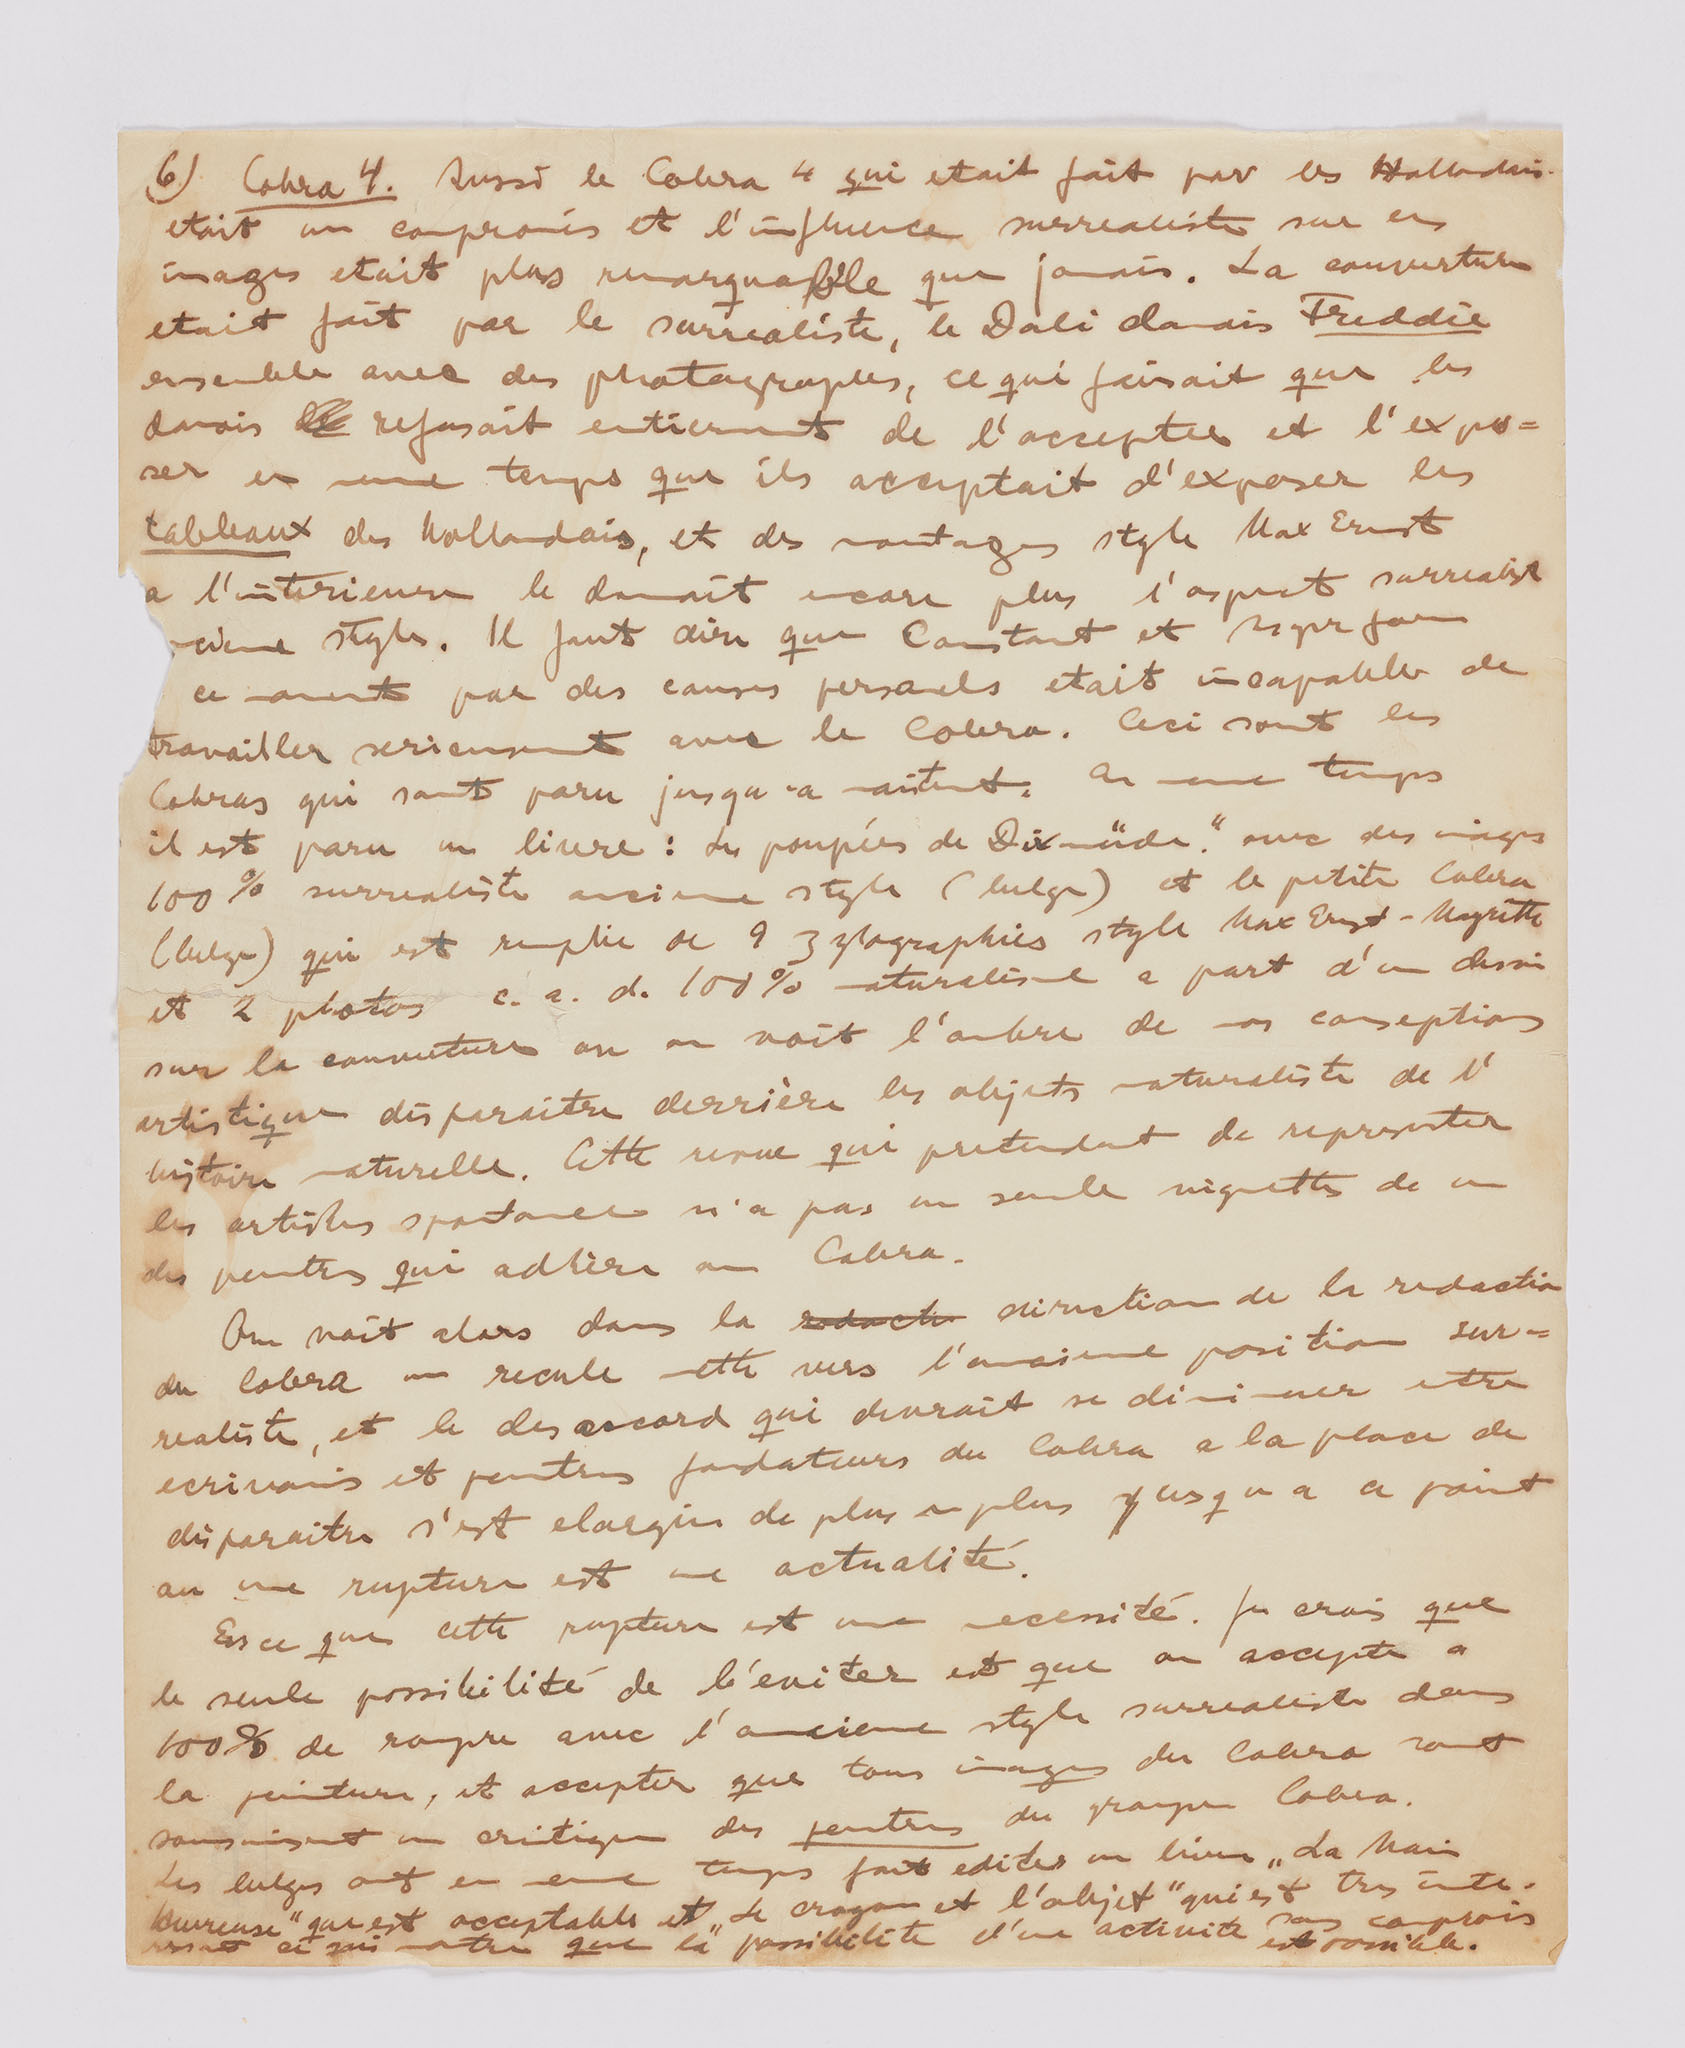 6) Cobra 4. Aussi le Cobra 4 qui etait fait par les Hollandais
etait un compromis et l'influence surrealiste sur en
images etait plus remarquable que jamais. La couverture
etait fait par le surrealiste, le Dali danais Freddie
ensemble avec des photographes, ce qui faisait que les
danais refusait entierment de l'accepter et l'expo=
ser en meme temps que ils acceptait d'exposer les
tableaux des hollandais, et des montages style Max Ernst
a l'interieure le donnait encore plus l'aspect surrealist
style. Il faut dire que Constant et
ce moment par des causes personels etait incapables de
travailler serieusment avec le Cobra. Ceci sont les
Cobras qui sont paru jusqu-a maitent. En meme temps
il est paru un livre : Les poupées de Dixmüde." avec des images
100% surrealiste ancienne style (belge) et le petite Cobra
(belge) qui est remplie de 9 zylographies style Max Ernst - Magritte
et 2 photos c. a. d. 100% naturalisme a part d'un dessin
sur la couverture ou on voit l'ombre de nos conseptions
artistique disparaitre derrière les objets naturaliste de l'
histoire naturelle. Cette revue qui pretendant de representer
les artistes spontanees n'a pas un seule vignette de un
des peintres qui adhère au Cobra.
On voit alors dans la redacti direction de la redaction
du Cobra un recule nette vers l'ancienne position sur=
realiste, et le desaccord qui devrait se diminuer entre
ecrivains et peintres fondateurs du Cobra a la place de
disparaitre s'est elargie de plus en plus jusqu a ce point
ou une rupture est une actualité.
Es ce que cette rupture est une necessité. Je crois que
le seule possibilité de l'eviter est que on accepte a
100% de rompre avec l'ancienne style surrealiste dans
la peinture, et accepter que tous images du Cobra sont
soumisent un critique des peintres du groupe Cobra.
Les belges ont en meme temps fait editer un livre „La Main
heureuse" que est acceptable et „Le crayon et l'objet" qui est tres inte-
ressant ci qui montre que la possibilite d'une activité sans compromis
est possible.